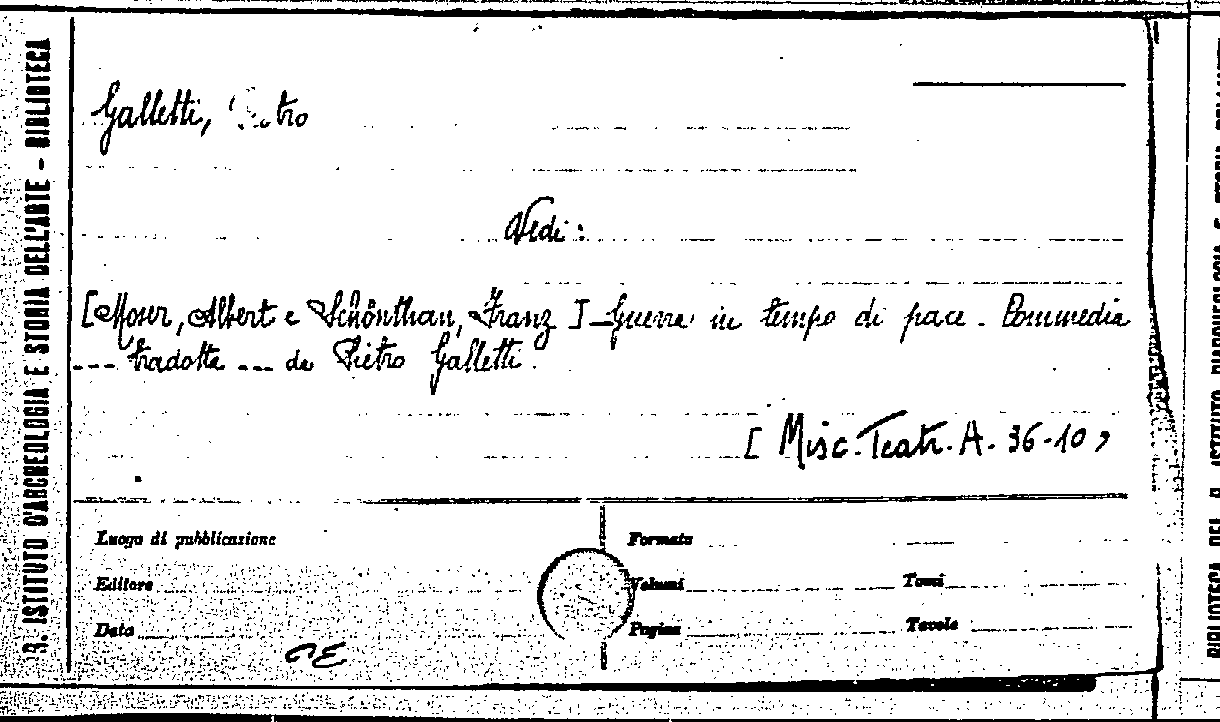 Galletti, Pietro
Vedi:
[Moser, Albert e Schönthan, Franz] - Guerra in tempo di pace. Commedia
--- tradotta --- da Pietro Galletti.
[Misc. Teatr. A. 36-10]
Luogo di pubblicazione
Formato
Editore
Volumi
Tomi
Data
Pagine
Tavole
R. ISTITUTO D'ARCHEOLOGIA E STORIA DELL'ARTE - BIBLIOTECA
BIBLIOTECA DEL R. ISTITUTO